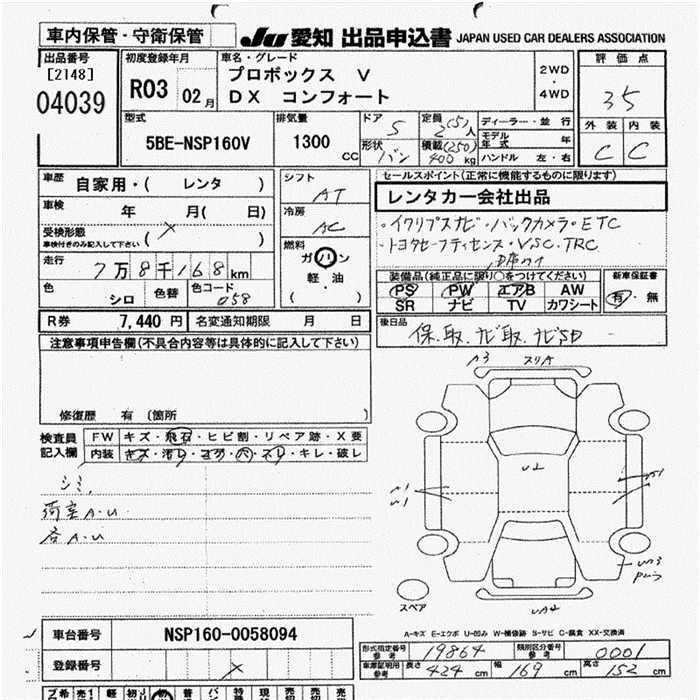 車内保管・守衛保管
JU 愛知 出品申込書 JAPAN USED CAR DEALERS ASSOCIATION
出品番号
[2148]
04039
初度登録年月
R03 02月
車名・グレード
プロボックス V
DX コンフォート
2WD
・
4WD
評価点
35
外装 内装
C C
型式
5BE-NSP160V
排気量
1300
CC
ドア
5
形状
バン
定員
2(5)人
積載(250)
400 kg
ディーラー・並行
モデル年式 年
ハンドル 左・右
車歴
自家用・( レンタ )
車検
年 月( 日)
受検形態
車検付きのみ記入して下さい ( )
走行
7万8千168km
色
シロ
色替
色コード
058
シフト
AT
冷房
AC
燃料
ガ ハ
軽・油
( )
セールスポイント(正常に機能するものに限ります)
レンタカー会社出品
・イクリプスナビ・バックカメラ・ETC
・トヨタセーフティセンス・VSC.TRC
装備品(純正品に限り○をつけてください)
PS PW エアB AW
SR ナビ TV カワシート
新車保証書
有・無
R券 7,440円 名変通知期限 月 日
後日品
保.取.ナビ取.ナビSD
注意事項申告欄(不具合内容等は具体的に記入して下さい)
修復歴 有 〔箇所 〕
検査員
記入欄
FW キズ・飛石・ヒビ割・リペア跡・X要
内装 キズ・汚レ・コゲ・穴・スレ・キレ・破レ
シミ,
荷室A.U
各A.U
A3 スリA
U2
A1
U1
UA2
スペア
A-キズ E-エクボ U-凹み W-補修跡 S-サビ C-腐食 XX-交換済
車台番号 NSP160-0058094
登録番号
型式指定番号
参考
19864
類別区分番号
参考
0001
車庫証明用
参考
長さ 424 cm
幅 169 cm
高さ 152 cm